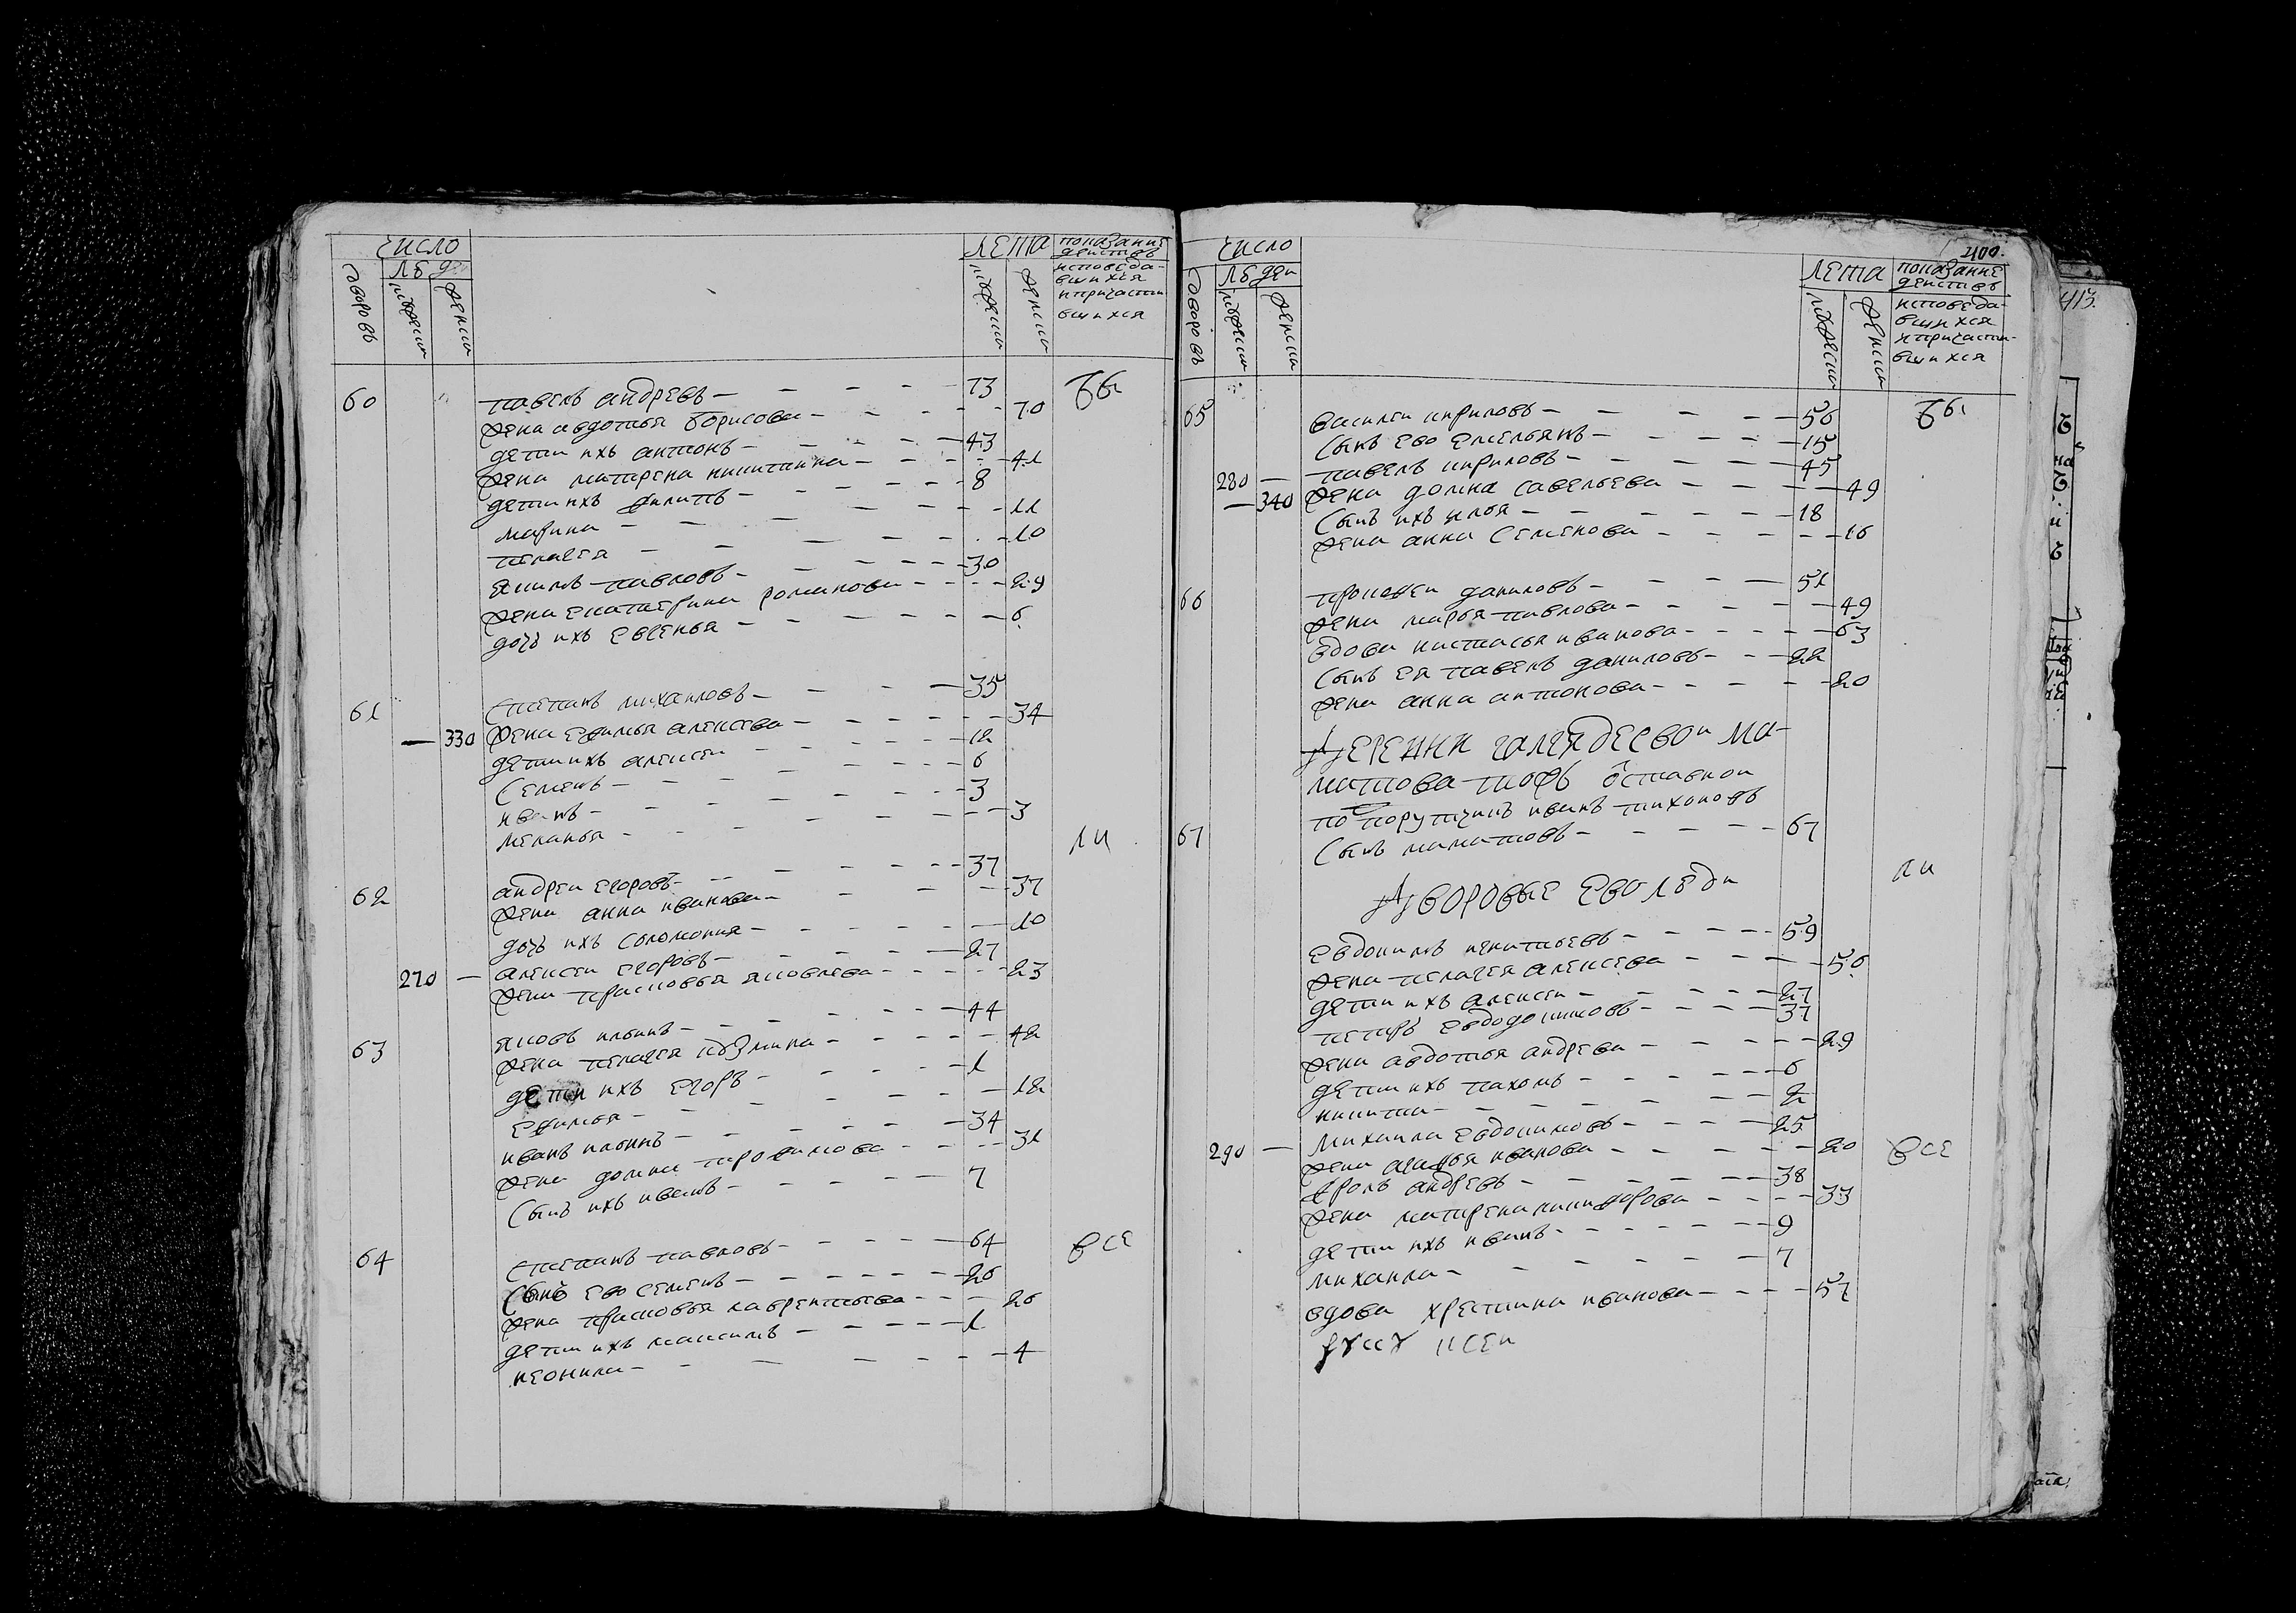 число
людеи
дворовъ
мужеска
женска
лета
мужеска
женска
показание
деиствъ
исповеда-
вшихся
и причасти
вшихся
60 павелъ андревъ — 73
жена авдотья борисова — 70
дети ихъ антонъ — 43
жена матрена никитина — 41
дети ихъ филипъ — 8
марина — 11
пелагея — 10
якимъ павловъ — 30
жена екатерина романова — 29
дочь ихъ евгенья — 6
61 степанъ михаиловъ — 35
— 330 жена ефимья алексеева — 34
дети ихъ алексеи — 12
семенъ — 6
иванъ — 3
меланья — 3
62 андреи егоровъ — 37
жена анна иванова — 37
дочь ихъ соломония — 10
270 — алексеи егоровъ — 27
жена прасковья яковлева — 23
63 яковъ ильинъ — 44
жена пелагея кузмина — 42
дети ихъ егоръ — 1
ефимья — 12
иванъ ильинъ — 34
жена домна трофимова — 31
сынъ ихъ иванъ — 7
64 степанъ павловъ — 64
сынъ ево семенъ — 26
жена прасковья лаврентьева — 26
дети ихъ максимъ — 1
неонила — 4
бы
ли
все
400.
число
людеи
дворовъ
мужеска
женска
лета
мужеска
женска
показание
деиствъ
исповеда-
вшихся
и причасти-
вшихся
65 василеи кириловъ — 56
сынъ ево емельянъ — 15
280 — павелъ кириловъ — 45
— 340 жена домна савельева — 49
сынъ ихъ илья — 18
жена анна семенова — 16
66 прокофеи даниловъ — 51
жена марья павлова — 49
вдова настасья иванова — 63
сынъ ея павелъ даниловъ — 22
жена анна антонова — 20
деревни ма-
матова тожъ отставнои
по порутчикъ иванъ тихоновъ
67 сынъ маматовъ — 67
дворовые ево люди
евдокимъ игнатьевъ — 59
жена пелагея алексеева — 56
дети ихъ алексеи — 27
петръ евдодокимовъ — 37
жена авдотья андрева — 29
дети ихъ пахомъ — 6
никита — 2
290 — михаила евдокимовъ — 25
жена агафья иванова — 20
фролъ андревъ — 38
жена матрена никифорова — 33
дети ихъ иванъ — 9
михаила — 7
вдова христина иванова — 57
бы
ли
все
413.